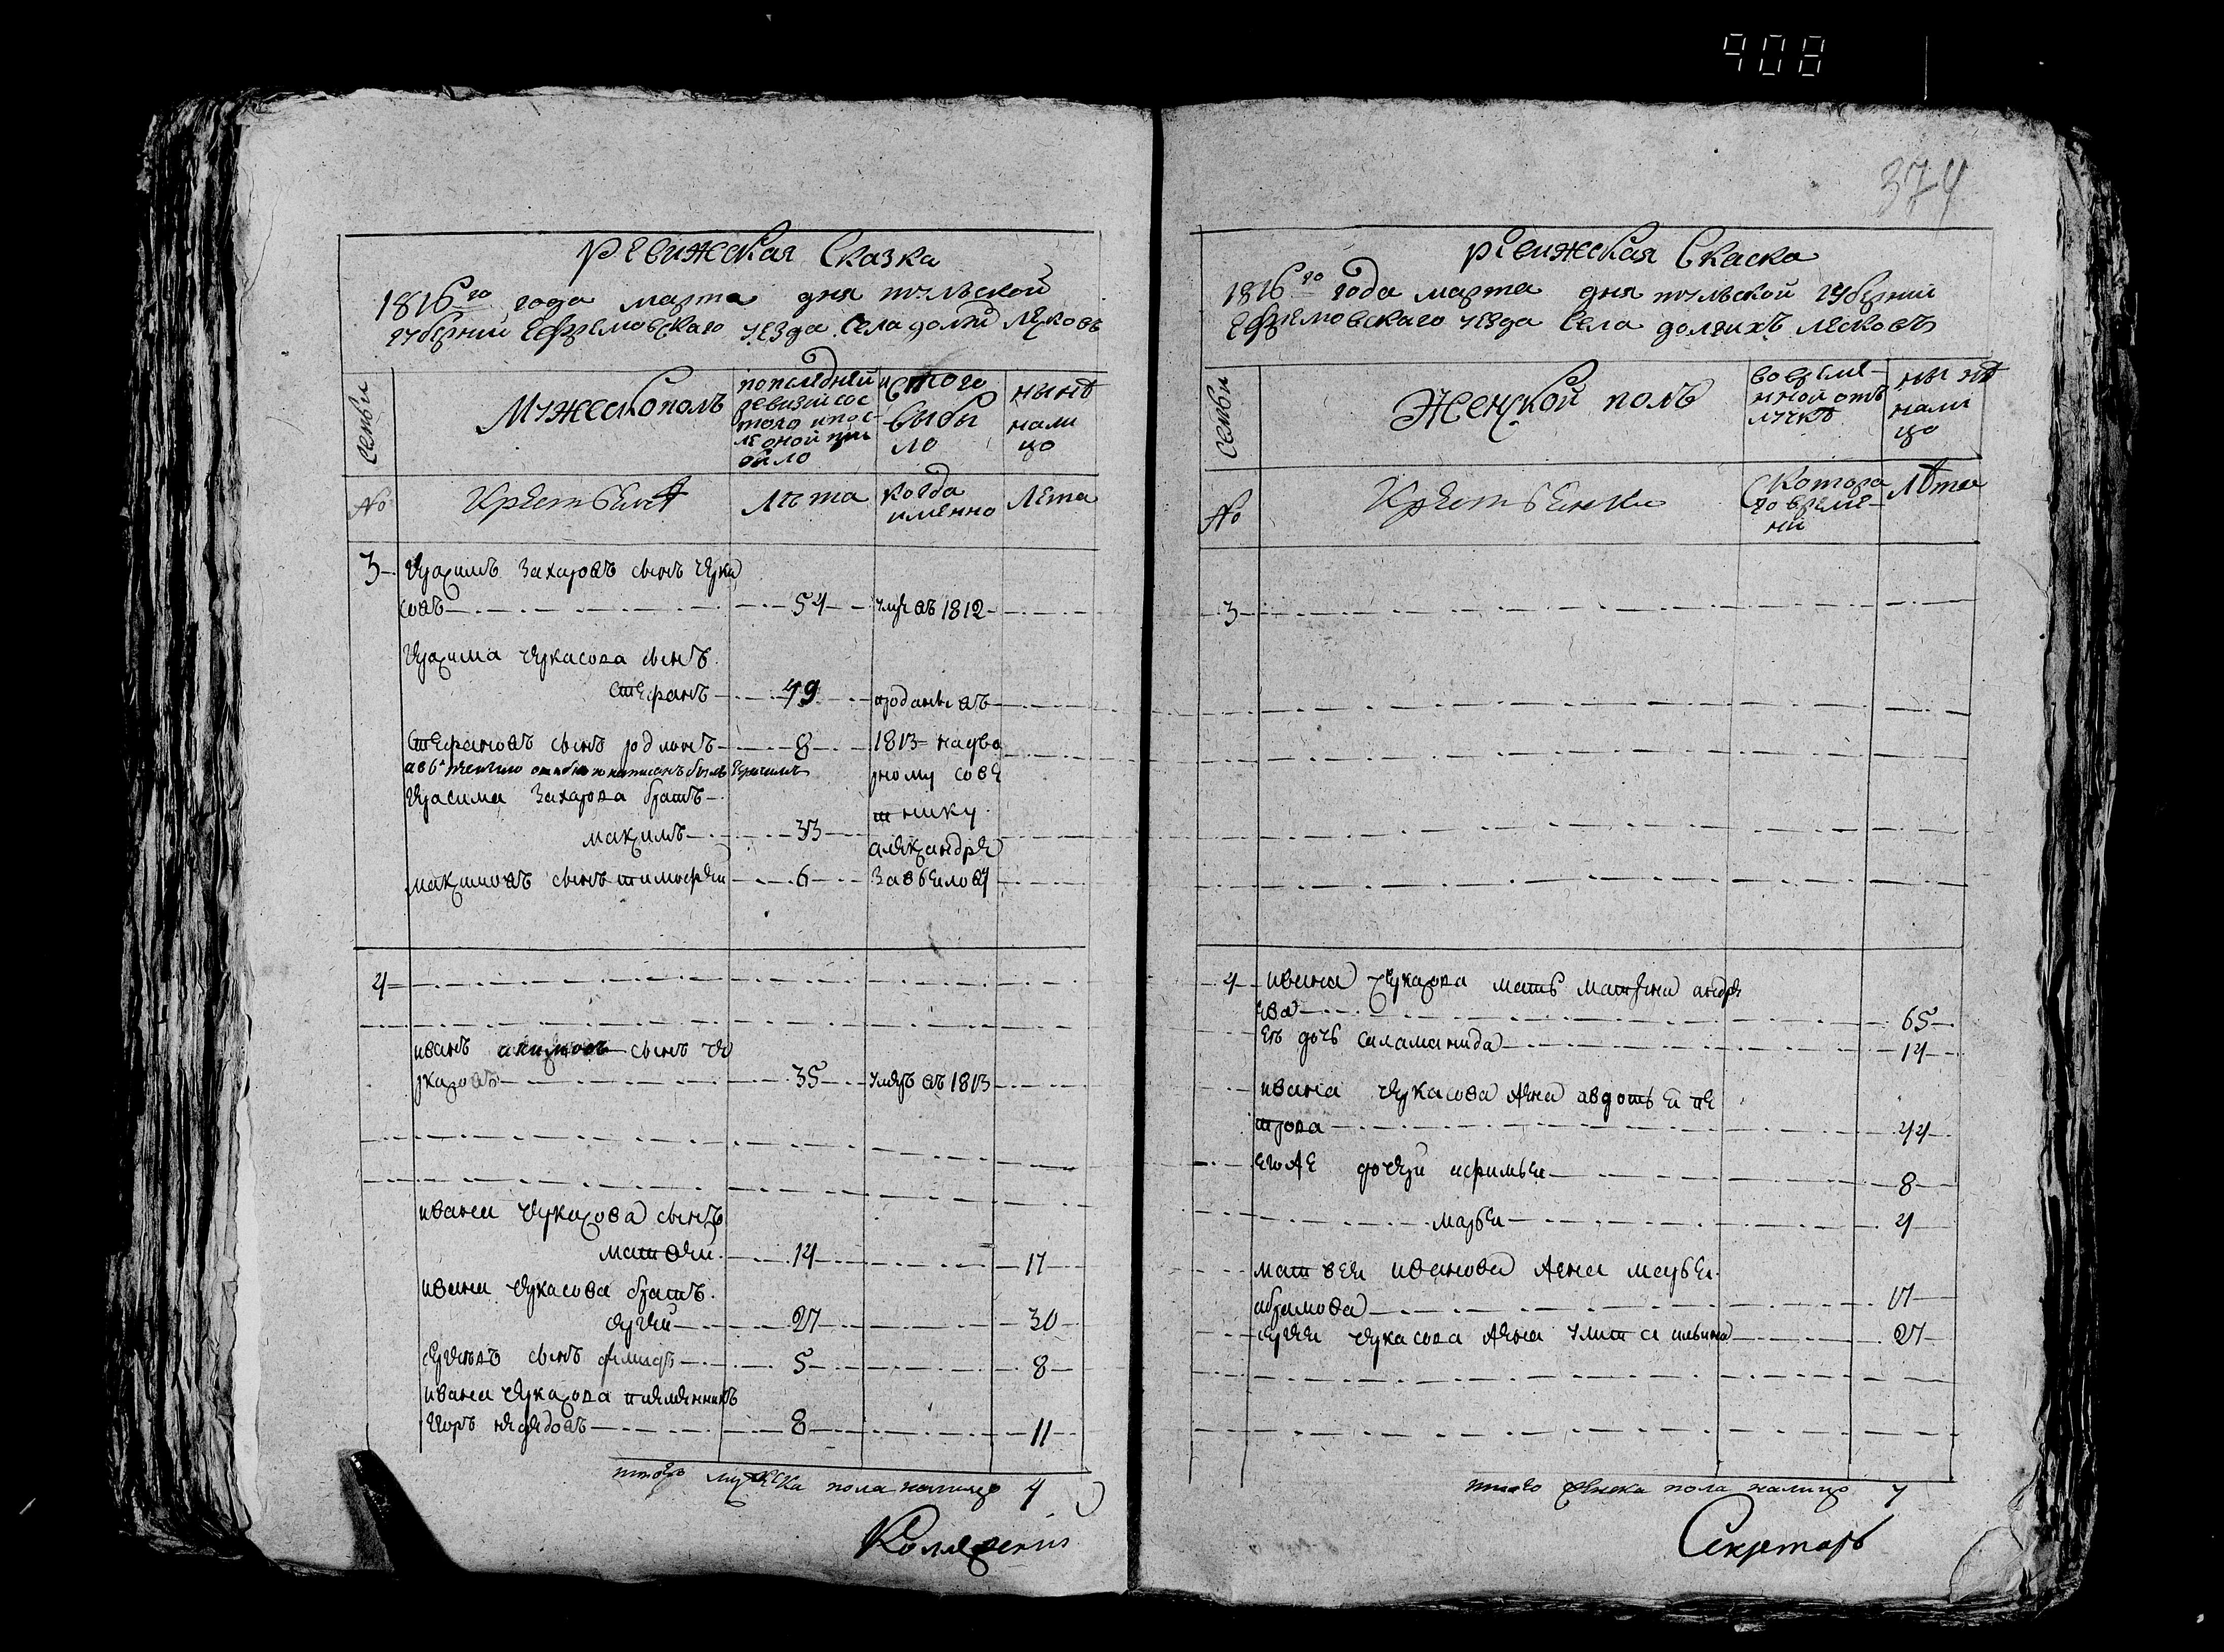 908
374
Ревижская Сказка
1816го года марта дня тульской
губернии Ефремовскаго уезда села долгихъ лесковъ
семьи
Мужеской полъ
попследней ревизии состояло и после оной прибыло
Ис того выбыло
ныне налицо
№
Крестьяне
Лета
когда именно
Лета
3
Герасимъ Захаровъ сынъ Черка
совъ 54 умре въ 1812
Герасима Черкасова сынъ
Стефанъ 49 проданы въ
Стефановъ сынъ родионъ 8 1813 надво
рному сове
Герасима Захарова братъ
тнику
максимъ 33
александре
максимовъ сынъ тимофей 6 Завьялову
4
иванъ акимовъ сынъ че
ркасовъ 35 умре въ 1813
ивана Черкасова сынъ
матвей 14 17
ивана Черкасова братъ
сергей 27 30
сергеевъ сынъ демидъ 5 8
ивана Черкасова племянникъ
Егоръ нефедовъ 8 11
итого мужеска пола налицо 4
Коллежский
Ревижская Скаска
1816го года марта дня тульской губернии
Ефремовскаго уезда села долгихъ лесковъ
семьи
Женской полъ
во временной отлучке
ныне налицо
№
Крестьянки
С котораго времени
Лета
3
4
ивана Черкасова мать матрена андре
ева 65
Ея дочь саламанида 14
ивана Черкасова жена авдотья пе
трова 44
Его же дочери афимья 8
марья 4
матвея иванова жена марья
абрамова 17
сергея Черкасова жена улита ильина 27
итого женска пола налицо 7
Секретарь